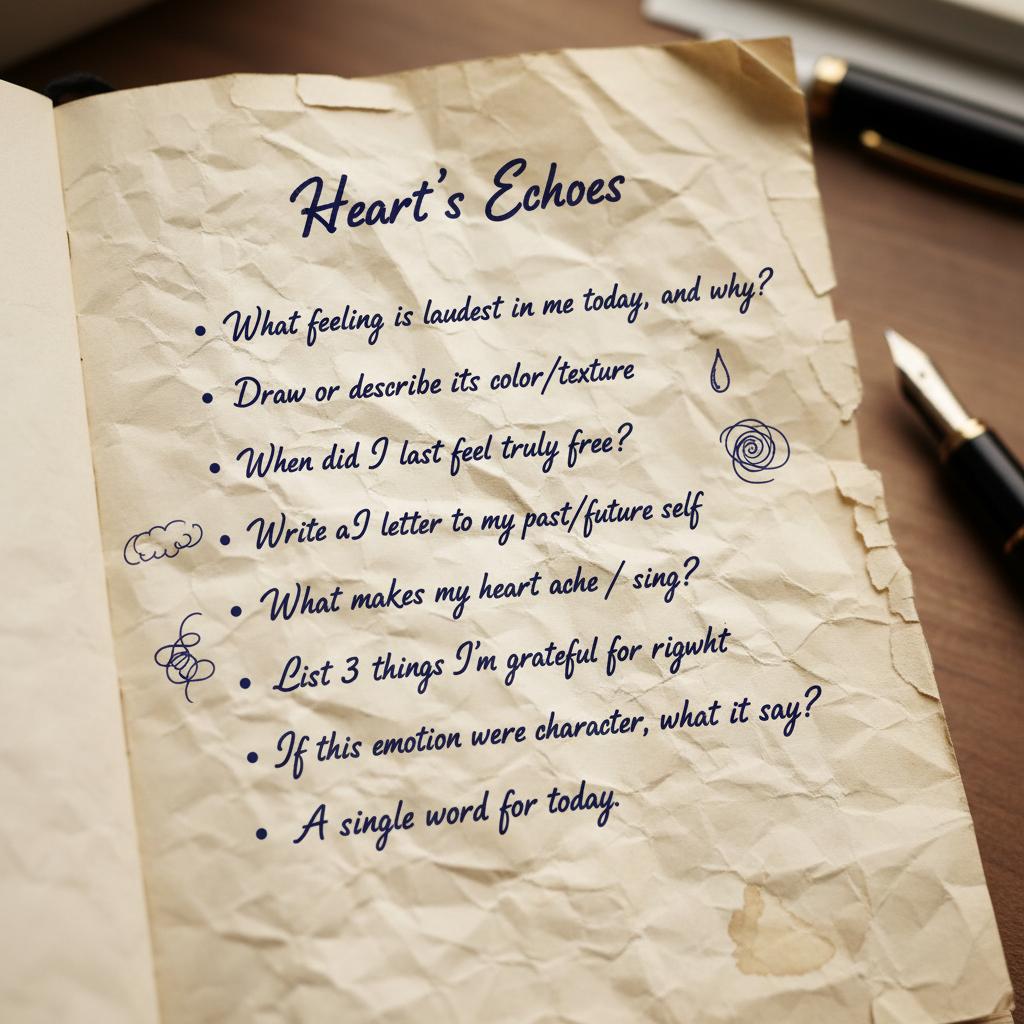 Heart's Echoes
• What feeling is laudest in me today, and why?
• Draw or describe its color/texture
• When did I last feel truly free?
• Write aI letter to my past/future self
• What makes my heart ache / sing?
• List 3 things I'm grateful for rigwht
• If this emotion were character, what it say?
• A single word for today.